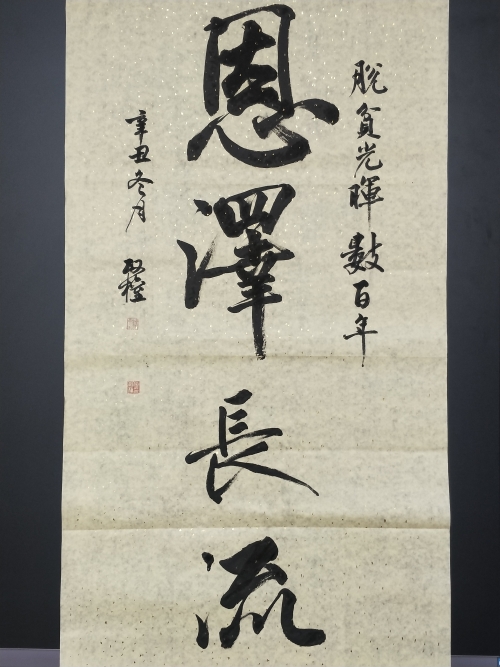 脫貧光暉數百年
恩澤長流
辛丑冬月